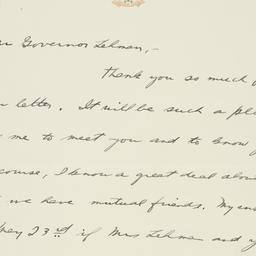 Governor Lehman,-
Thank you so much
letter. It will be such a
me to meet you and to know
course, I know a great deal
we have mutual friends. My
23rd if Mrs Lehman and